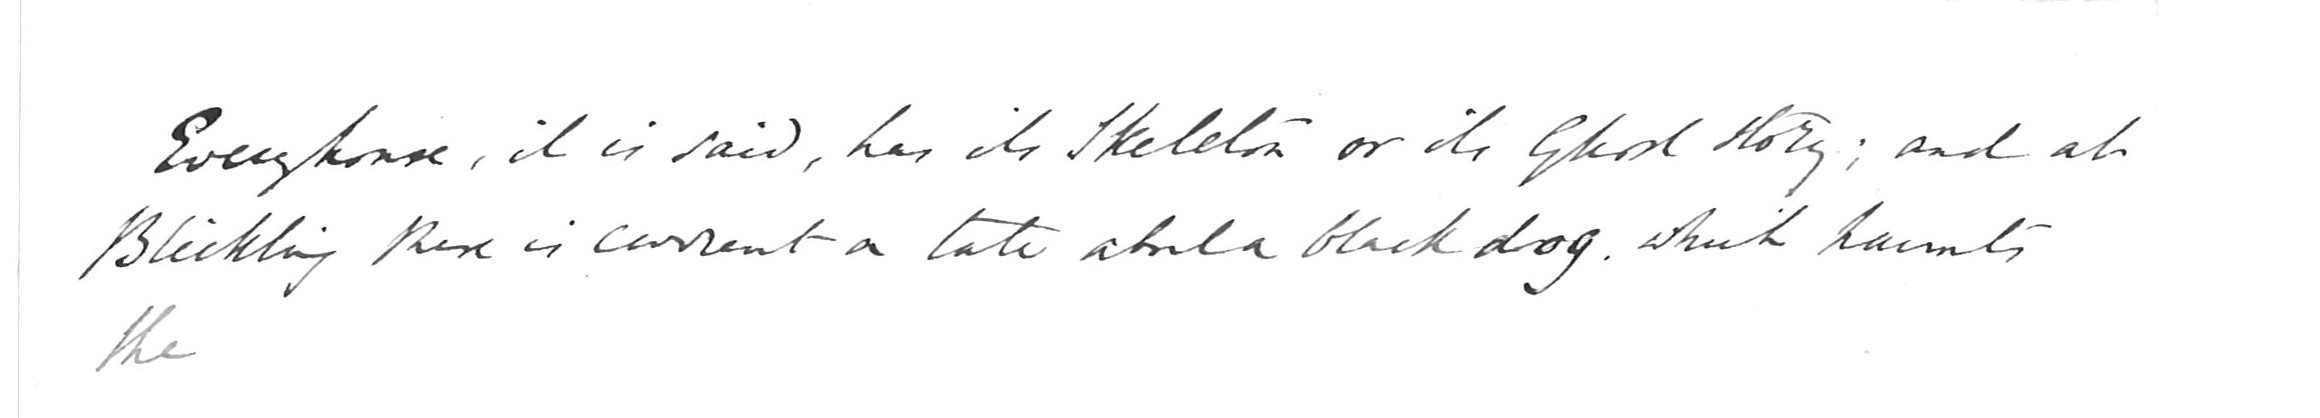 Every house, it is said, has its Skeleton or its Ghost Story; and at
Blickling there is current a tale about a black dog. which haunts
the